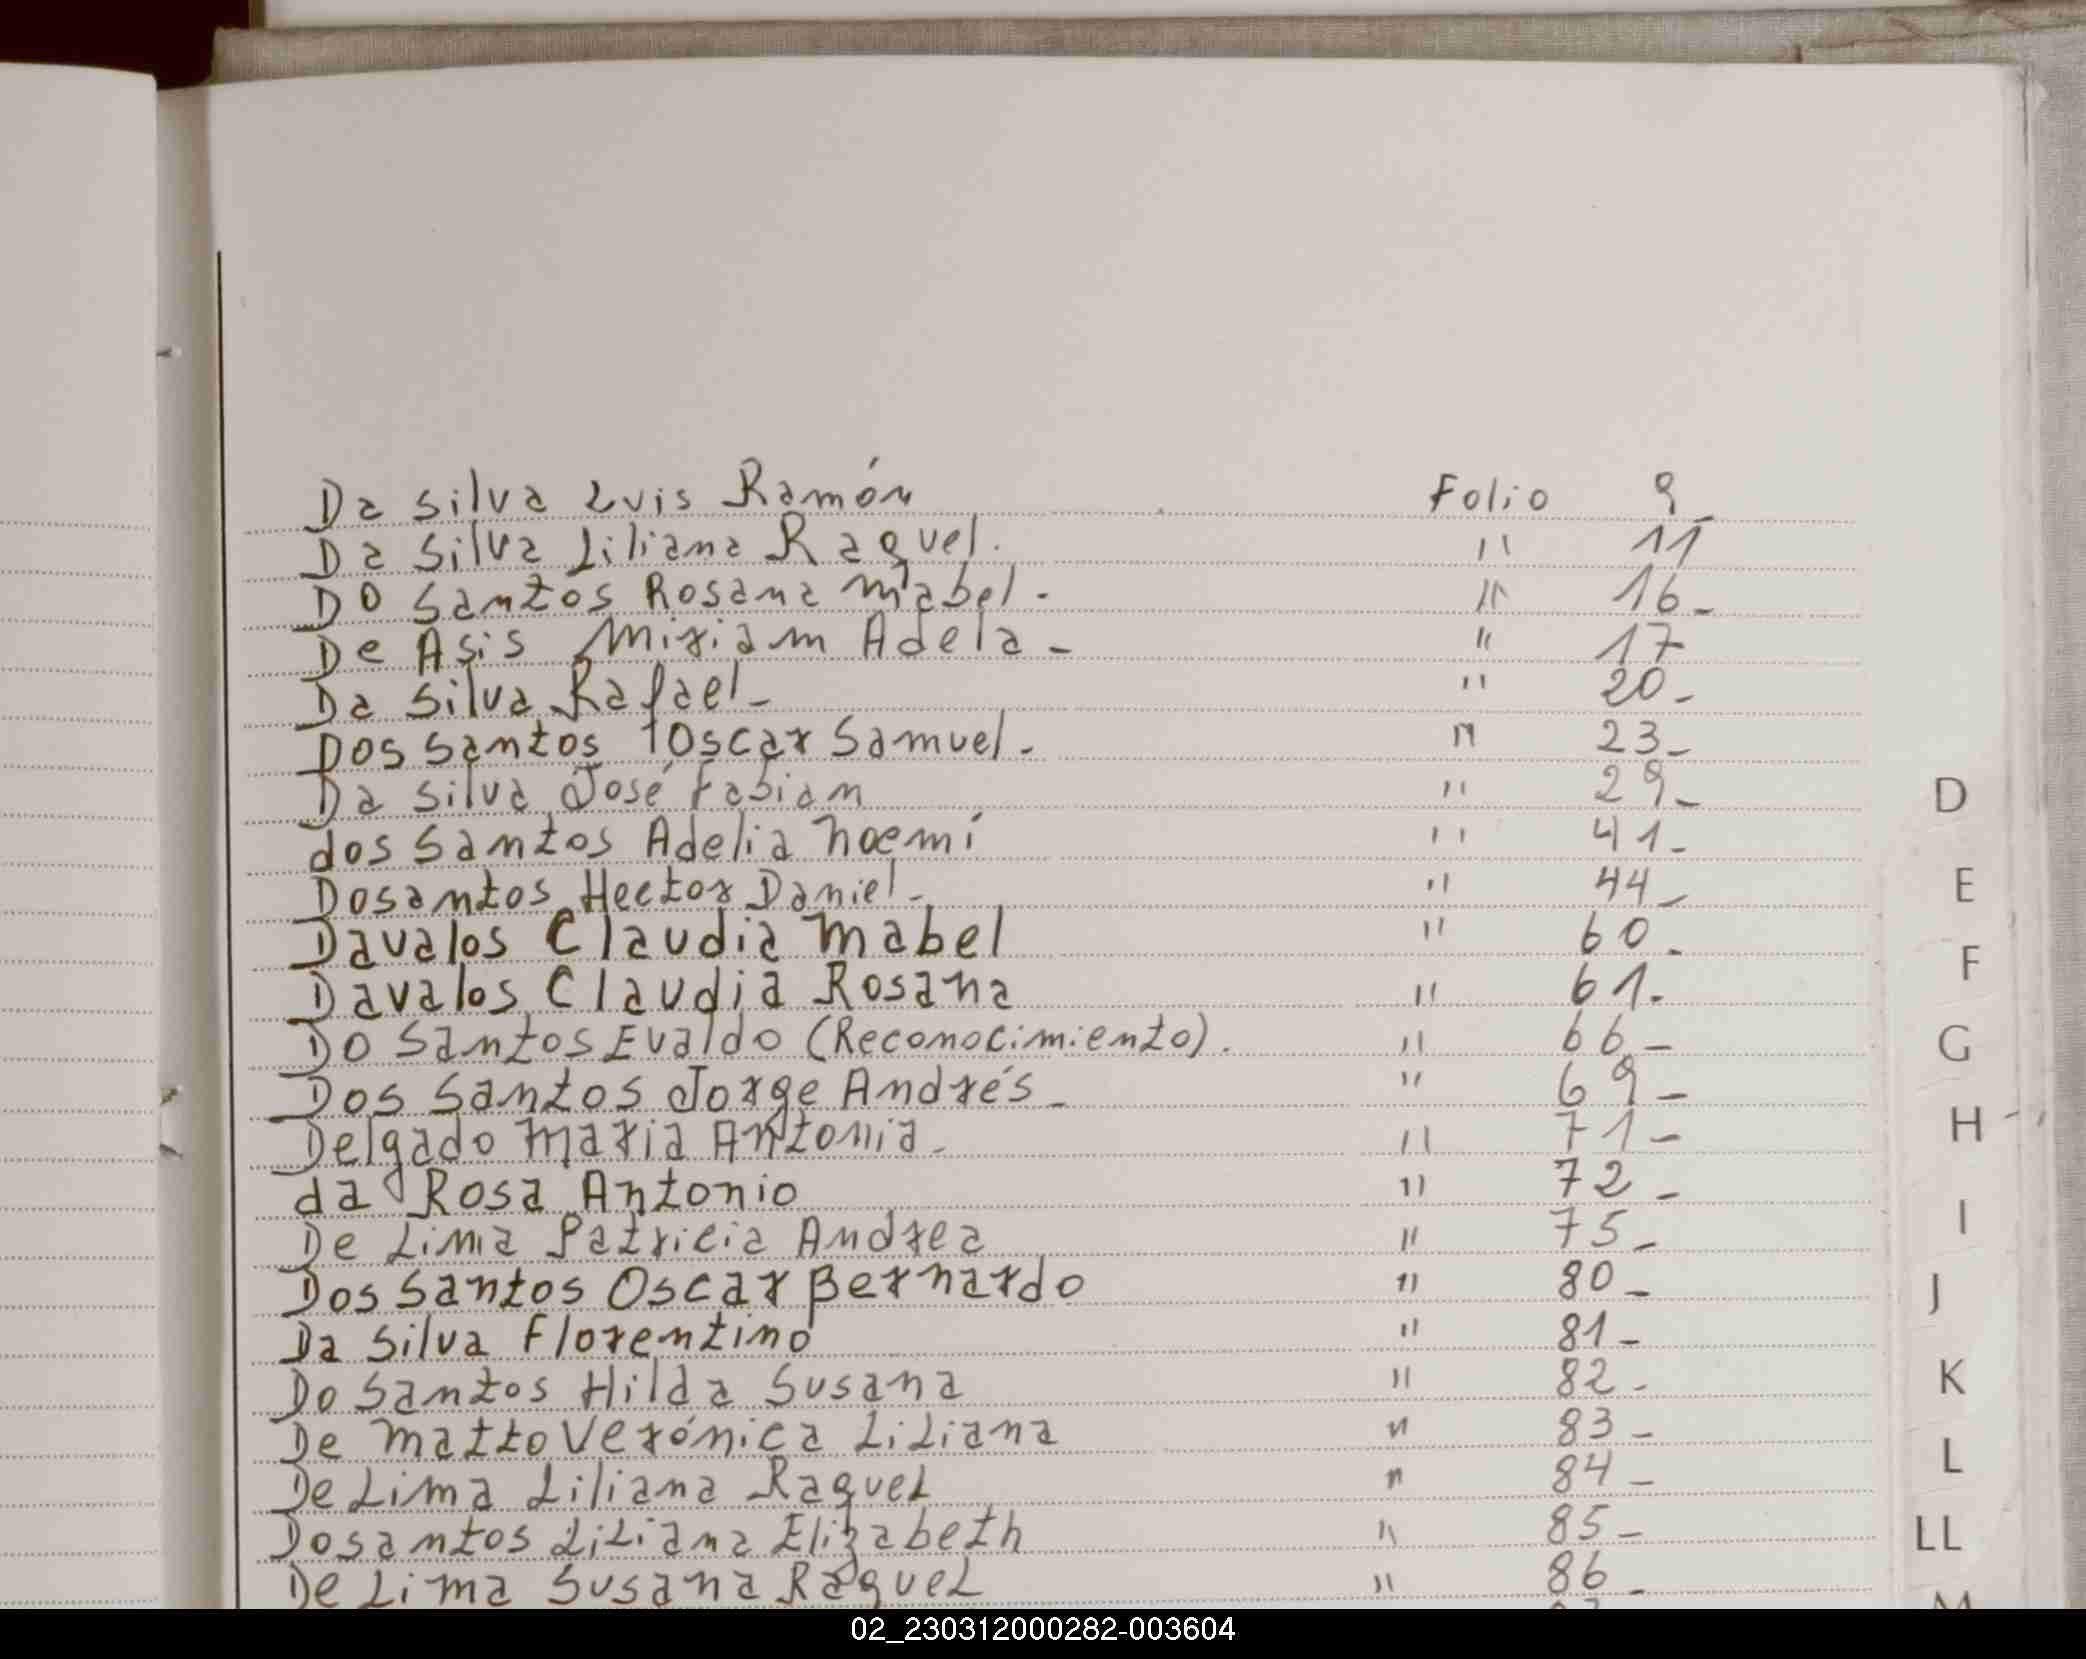 Da Silva Luis Ramón Folio 9_
Da Silva Liliana Raquel. " 11
Do Santos Rosana Mabel. " 16_
De Asis Miriam Adela_ " 17
Da Silva Rafael_ " 20_
Dos Santos Oscar Samuel. " 23_
Da Silva José Fabian " 29_
dos Santos Adelia Noemí " 41_
Dosantos Hector Daniel_ " 44_
Davalos Claudia Mabel " 60.
Davalos Claudia Rosana " 61.
Do Santos Evaldo (Reconocimiento). " 66_
Dos Santos Jorge Andrés_ " 69_
Delgado Maria Antonia_ " 71_
da Rosa Antonio " 72_
De Lima Patricia Andrea " 75_
Dos Santos Oscar Bernardo " 80_
Da Silva Florentino " 81_
Do Santos Hilda Susana " 82_
De Matto Verónica Liliana " 83_
De Lima Liliana Raquel " 84_
Dosantos Liliana Elizabeth " 85_
De Lima Susana Raquel " 86_
D
E
F
G
H
I
J
K
L
LL
M
02_230312000282-003604